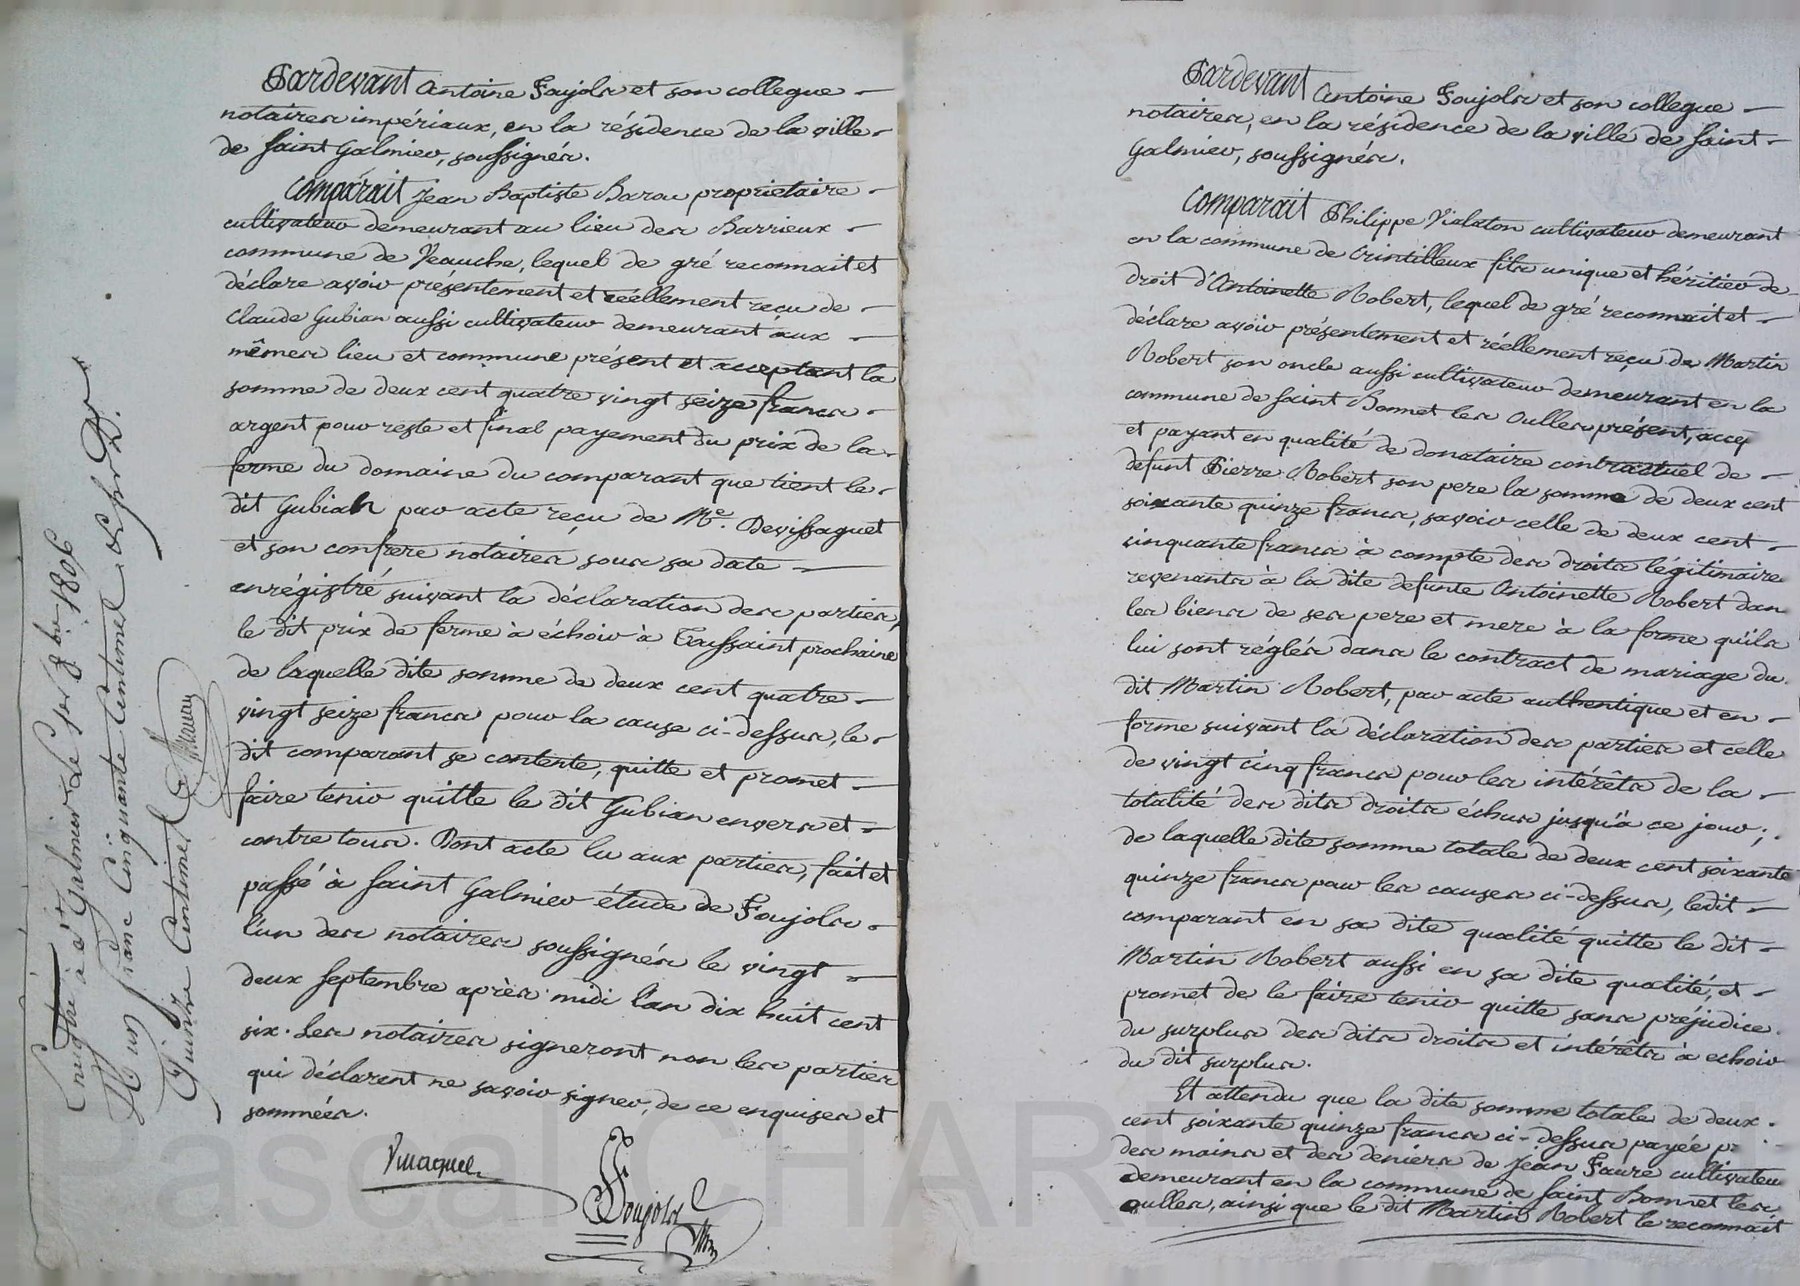 Pardevant Antoine Foujols et son collegue
notaires impériaux, en la résidence de la ville
de Saint Galmier, soussignés.
Comparait Jean Baptiste Barou proprietaire
cultivateur demeurant au lieu des Barrieux
commune de Veauche, lequel de gré reconnait et
déclare avoir présentement et réellement reçu de
Claude Gubian aussi cultivateur demeurant aux
mêmes lieu et commune présent et acceptant la
somme de deux cent quatre vingt seize francs
argent pour reste et final payement du prix de la
ferme du domaine du comparant que tient le
dit Gubian par acte reçu de Me. Devissaguet
et son confrere notaires sous sa date
enrégistré suivant la déclaration des parties,
le dit prix de ferme à échoir à Toussaint prochaine
de laquelle dite somme de deux cent quatre
vingt seize francs pour la cause ci-dessus, le
dit comparant se contente, quitte et promet
faire tenir quitte le dit Gubian envers et
contre tous. Dont acte lu aux parties, fait et
passé à Saint Galmier étude de Foujols
l'un des notaires soussignés le vingt
deux septembre après midi l'an dix huit cent
six. Les notaires signeront non les parties
qui déclarent ne savoir signer, de ce enquises et
sommées.
Foujols
Enregtré à St Galmier le 1er 8bre 1806
un franc Cinquante Centimes
Quinze Centimes
Pardevant Antoine Foujols et son collegue
notaires, en la résidence de la ville de Saint
Galmier, soussignés.
Comparait Philippe Vialaton cultivateur demeurant
en la commune de Crintilleux fils unique et héritier de
droit d'Antoinette Robert, lequel de gré reconnait et
déclare avoir présentement et réellement reçu de Martin
Robert son oncle aussi cultivateur demeurant en la
commune de Saint Bonnet les Oulles présent, accep
et payant en qualité de donataire contractuel de
défunt Pierre Robert son pere la somme de deux cent
soixante quinze francs, savoir celle de deux cent
cinquante francs à compte des droits légitimaires
revenants à la dite defunte Antoinette Robert dans
les biens de ses pere et mere à la forme qu'ils
lui sont réglés dans le contract de mariage du
dit Martin Robert, par acte authentique et en
forme suivant la déclaration des parties et celle
de vingt cinq francs pour les intérêts de la
totalité des dits droits échus jusqu'à ce jour;
de laquelle dite somme totale de deux cent soixante
quinze francs pour les causes ci-dessus, ledit
comparant en sa dite qualité quitte le dit
Martin Robert aussi en sa dite qualité, et
promet de le faire tenir quitte sans préjudice
du surplus des dits droits et intérêts à echoir
du dit surplus.
Et attendu que la dite somme totale de deux
cent soixante quinze francs ci-dessus payée p
des mains et des deniers de Jean Faure cultivateur
demeurant en la commune de Saint Bonnet les
oulles, ainsi que le dit Martin Robert le reconnait
Pascal CHAR